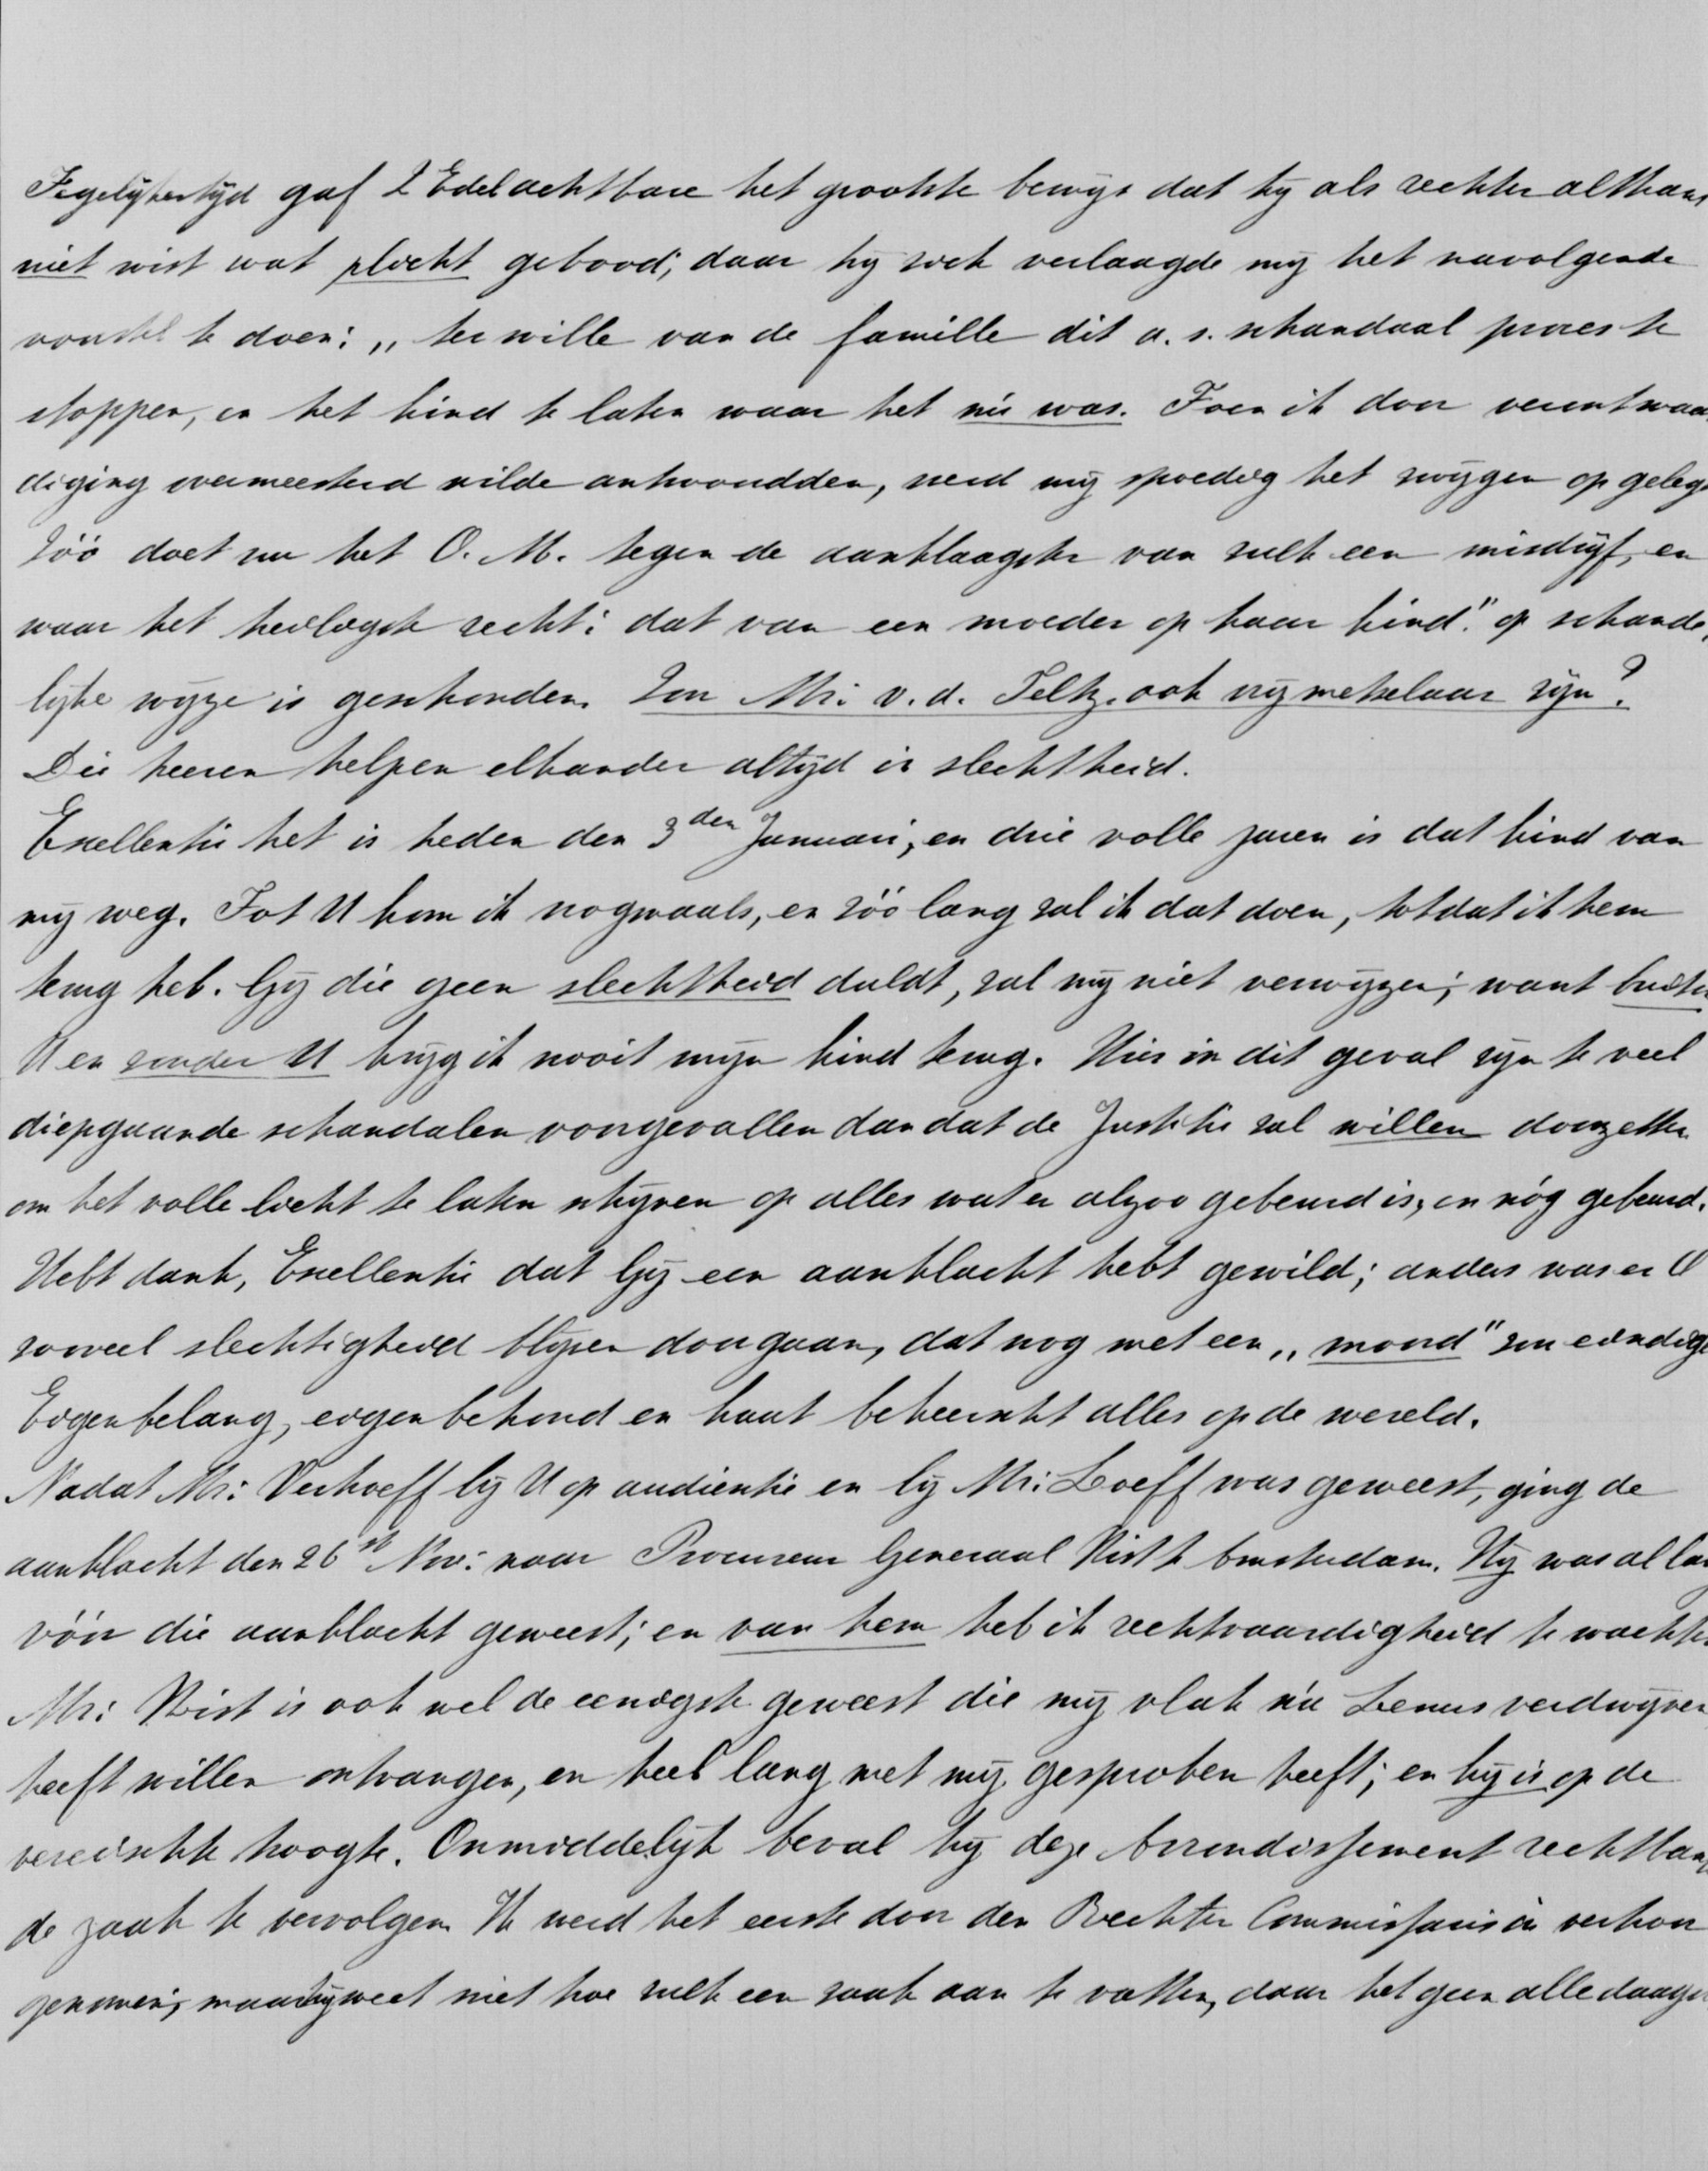 Tegelijkertijd gaf ZEdelachtbare het grootste bewijs dat hij als rechter althans
niet wist wat plicht gebood; daar hij zich verlaagde mij het navolgende
voorstel te doen: „ter wille van de familie dit a. s. schandaal proces te
stoppen, en het kind te laten waar het nú was. Toen ik door verontwaar
diging overmeesterd wilde antwoordden, werd mij spoedig het zwijgen opgelegd
Zóó doet nu het O. M. tegen de aanklaagster van zulk een misdrijf, en
waar het heiligste recht: dat van een moeder op haar kind" op schande
lijke wijze is geschonden. Zou Mr: v. d. Feltz. ook vrijmetselaar zijn?
Die heeren helpen elkander altijd in slechtheid.
Excellentie het is heden den 3den Januari, en drie volle jaren is dat kind van
mij weg. Tot U kom ik nogmaals, en zóó lang zal ik dat doen, totdat ik hem
terug heb. Gij die geen slechtheid duldt, zal mij niet verwijzen; want buiten
U en zonder U krijg ik nooit mijn kind terug. Hier in dit geval zijn te veel
diepgaande schandalen voorgevallen dan dat de Justitie zal willen doorzetten
om het volle licht te laten schijnen op alles wat er alzoo gebeurd is, en nóg gebeurd.
Hebt dank, Excellentie dat Gij een aanklacht hebt gewild; anders was er
zooveel slechtigheid blijven doorgaan, dat nog met een „moord" zou eindige
Eigenbelang, eigenbehoud en haat beheerscht alles op de wereld.
Nadat Mr: Verhoeff bij U op audientie en bij Mr: Loeff was geweest, ging de
aanklacht den 26st Nov: naar Procureur Generaal Kist te Amsterdam. Hij was al lan
vóór die aanklacht geweest; en van hem heb ik rechtvaardigheid te wachten
Mr: Kist is ook wel de eenigste geweest die mij vlak ná Lemus verdwijnen
heeft willen ontvangen, en heel lang met mij gesproken heeft; en hij is op de
vereischte hoogte. Onmiddelijk beval hij deze Arrondissement rechtban
de zaak te vervolgen. Ik werd het eerste door den Rechter Commissaris in verhoor
genomen; maar hij weet niet hoe zulk een zaak aan te vatten, daar het geen alledaags